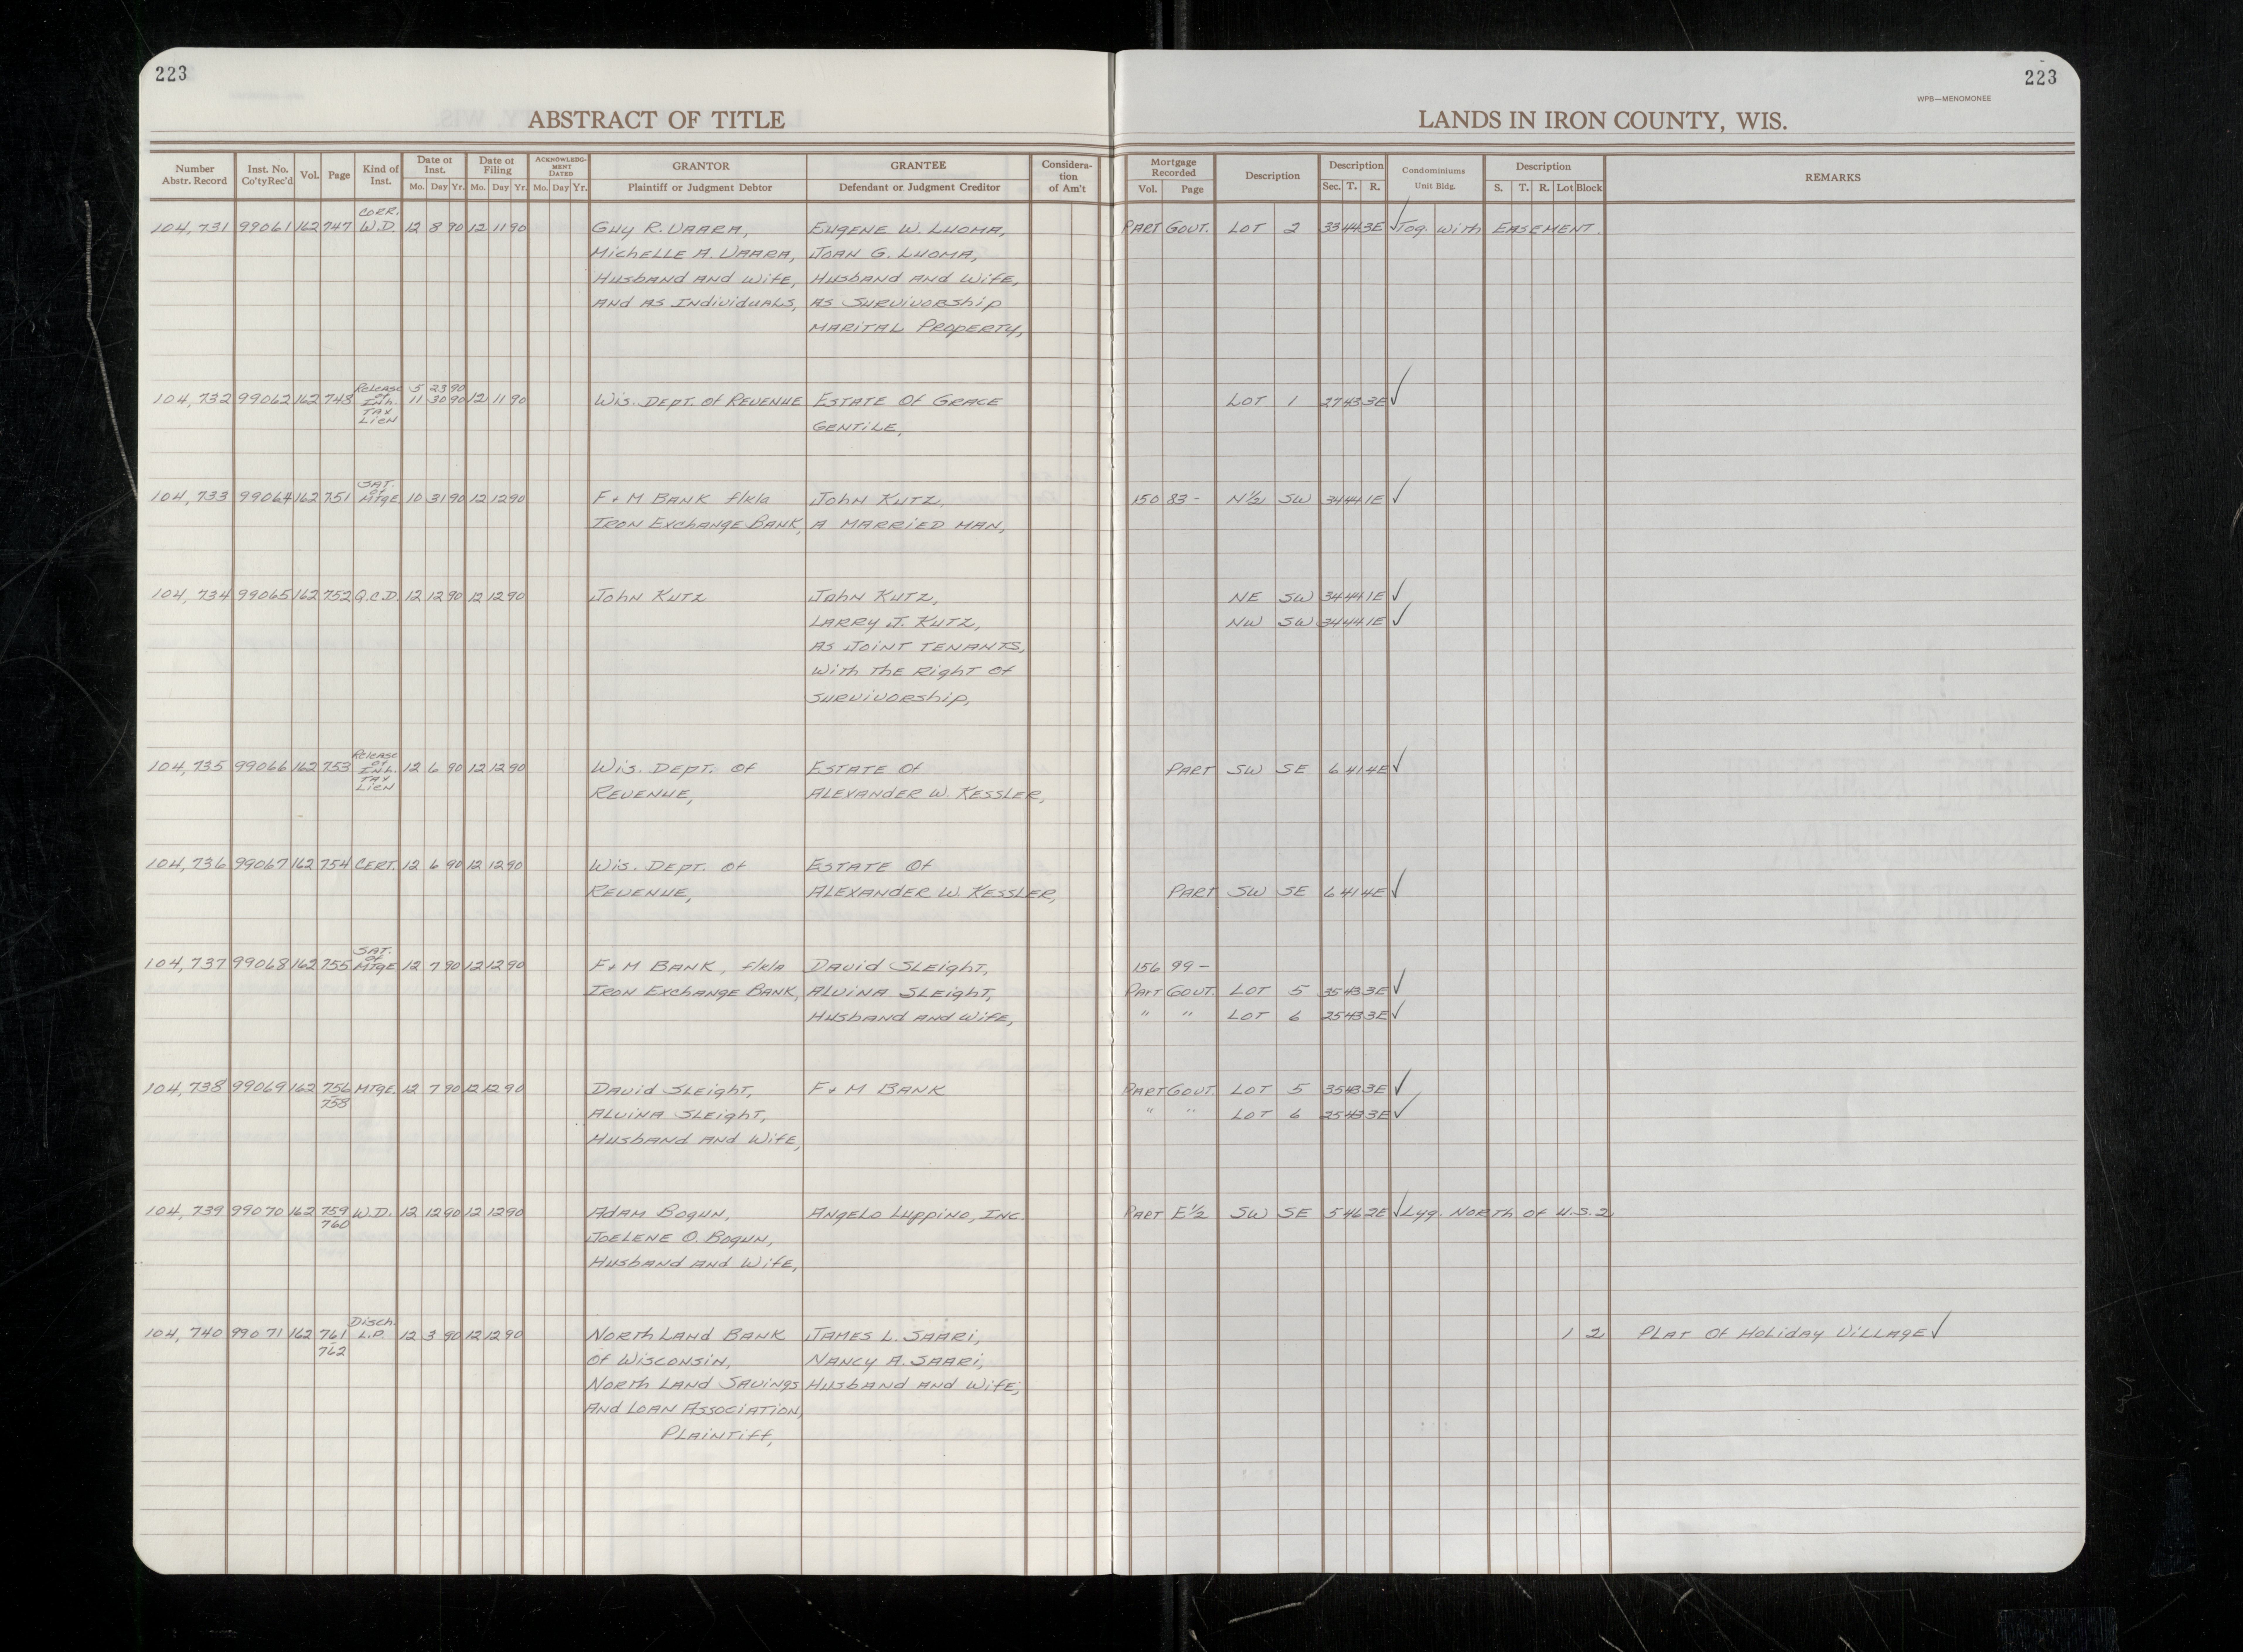 223
223
WPB—MENOMONEE
ABSTRACT OF TITLE
LANDS IN IRON COUNTY, WIS.
Number Abstr. Record | Inst. No. Co'ty Rec'd | Vol. | Page | Kind of Inst. | Date of Inst. Mo. Day Yr. | Date of Filing Mo. Day Yr. | ACKNOWLEDG-MENT DATED Mo. Day Yr. | GRANTOR Plaintiff or Judgment Debtor | GRANTEE Defendant or Judgment Creditor | Considera-tion of Am't | Mortgage Recorded Vol. Page | Description | Description Sec. T. R. | Condominiums Unit Bldg. | Description S. T. R. Lot Block | REMARKS
CORR.
104,731 99061 162 747 W.D. 12 8 90 12 11 90 Guy R. Vaara, Eugene W. Luoma, Part Gout. Lot 2 33 44 3E ✓ Tog. with Easement.
Michelle A. Vaara, Joan G. Luoma,
Husband and Wife, Husband and Wife,
and as Individuals, as Survivorship
Marital Property,
Release 5 23 90
104,732 99062 162 748 of Inh. 11 30 90 12 11 90 Wis. Dept. of Revenue Estate of Grace Lot 1 27 43 3E ✓
Tax
Lien Gentile,
Sat.
of
104,733 99064 162 751 Mtge 10 31 90 12 12 90 F & M Bank f/k/a John Kutz, 150 83- N½ SW 34 44 1E ✓
Iron Exchange Bank, a married man,
104,734 99065 162 752 Q.C.D. 12 12 90 12 12 90 John Kutz John Kutz, NE SW 34 44 1E ✓
Larry J. Kutz, NW SW 34 44 1E ✓
as Joint Tenants,
with the Right of
Survivorship,
Release
of
104,735 99066 162 753 Inh. 12 6 90 12 12 90 Wis. Dept. of Estate of Part SW SE 6 41 4E ✓
Tax
Lien Revenue, Alexander W. Kessler,
104,736 99067 162 754 Cert. 12 6 90 12 12 90 Wis. Dept. of Estate of
Revenue, Alexander W. Kessler, Part SW SE 6 41 4E ✓
Sat.
of
104,737 99068 162 755 Mtge 12 7 90 12 12 90 F & M Bank, f/k/a David Sleight, 156 99-
Iron Exchange Bank, Alvina Sleight, Part Gout. Lot 5 35 43 3E ✓
Husband and Wife, " " Lot 6 25 43 3E ✓
104,738 99069 162 756 Mtge. 12 7 90 12 12 90 David Sleight, F & M Bank Part Gout. Lot 5 35 43 3E ✓
758 Alvina Sleight, " " Lot 6 25 43 3E ✓
Husband and Wife,
104,739 99070 162 759 W.D. 12 12 90 12 12 90 Adam Bogun, Angelo Luppino, Inc. Part E½ SW SE 5 46 2E ✓ Lyg. North of U.S. 2
760 Joelene O. Bogun,
Husband and Wife,
Disch.
104,740 99071 162 761 L.P. 12 3 90 12 12 90 North Land Bank James L. Saari, 1 2 Plat of Holiday Village ✓
762 of Wisconsin, Nancy A. Saari,
North Land Savings Husband and Wife,
and Loan Association,
Plaintiff,